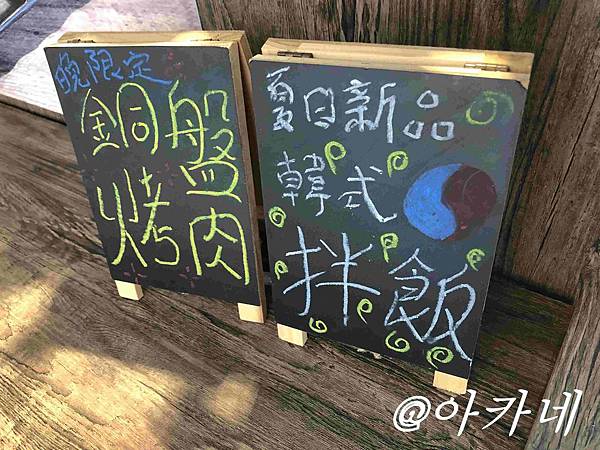 晚限定
銅盤
烤肉
夏日新品
韓式
拌飯
@아카네